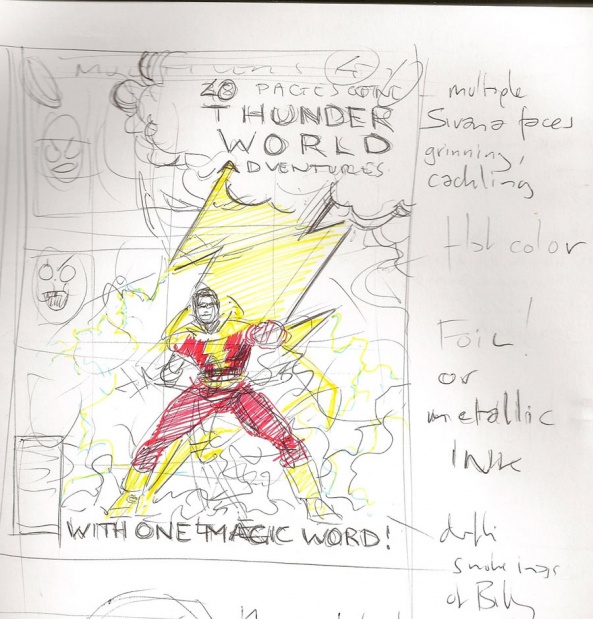 48 PAGES
THUNDER
WORLD
ADVENTURES
WITH ONE MAGIC WORD!
multiple
Sivana faces
grinning,
cackling
color
FOIL!
or
metallic
INK
smoke
of Billy